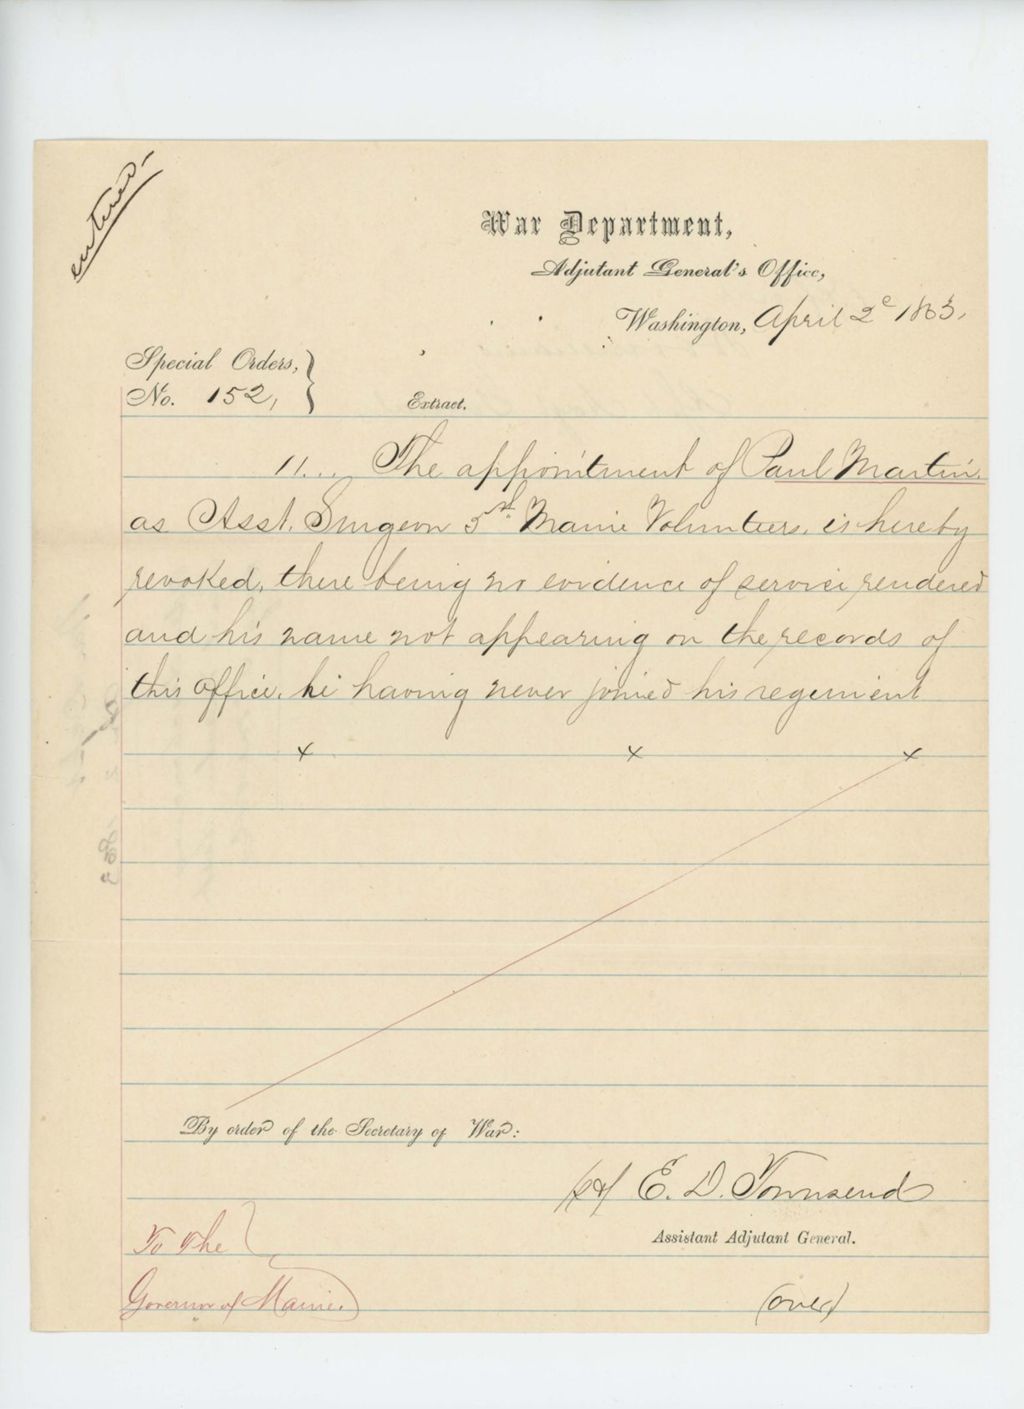 entered-
War Department,
Adjutant General's Office,
Washington, April 2d 1863,
Special Orders,
No. 152,
Extract.
11... The appointment of Paul Martin
as Asst. Surgeon 5th Maine Volunteers, is hereby
revoked, there being no evidence of service rendered
and his name not appearing on the records of
this Office, he having never joined his regiment
x x x
By order of the Secretary of War:
(sd) E. D. Townsend
Assistant Adjutant General.
To The
Governor of Maine.
(over)